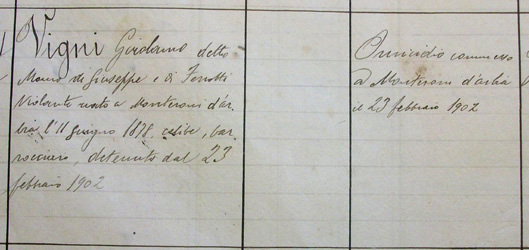 Vigni Girolamo detto
Momo di Giuseppe e di Ferretti
Violante nato a Monteroni d'ar-
bia l'11 giugno 1878, celibe, bar-
rocciaio, detenuto dal 23
febbraio 1902
Omicidio commesso
a Monteroni d'arbia
il 23 febbraio 1902